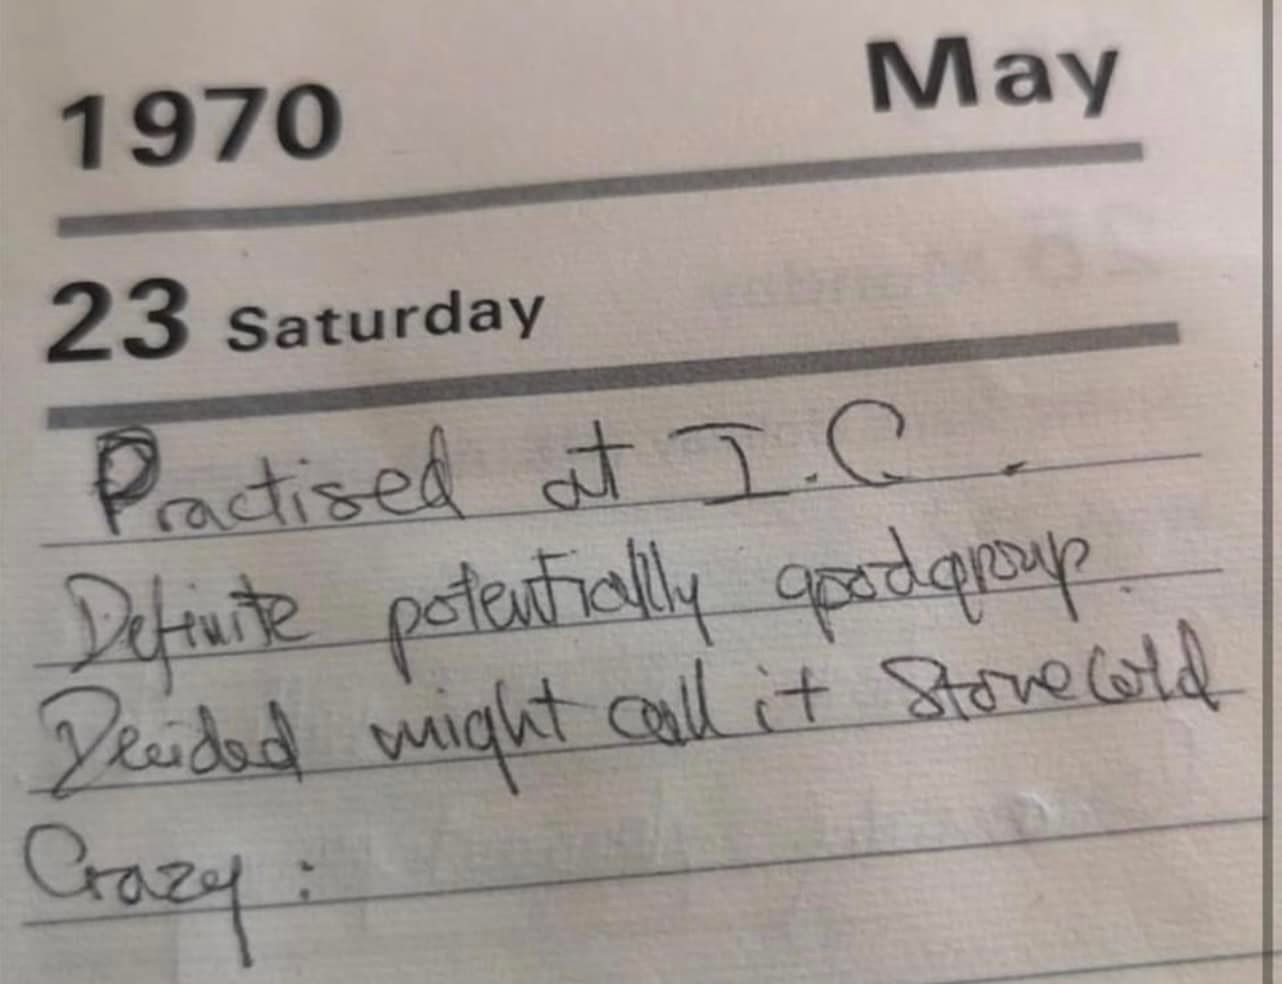 1970 May
23 Saturday
Practised at I.C.
Definite potentially good group.
Decided might call it Stone Cold
Crazy :